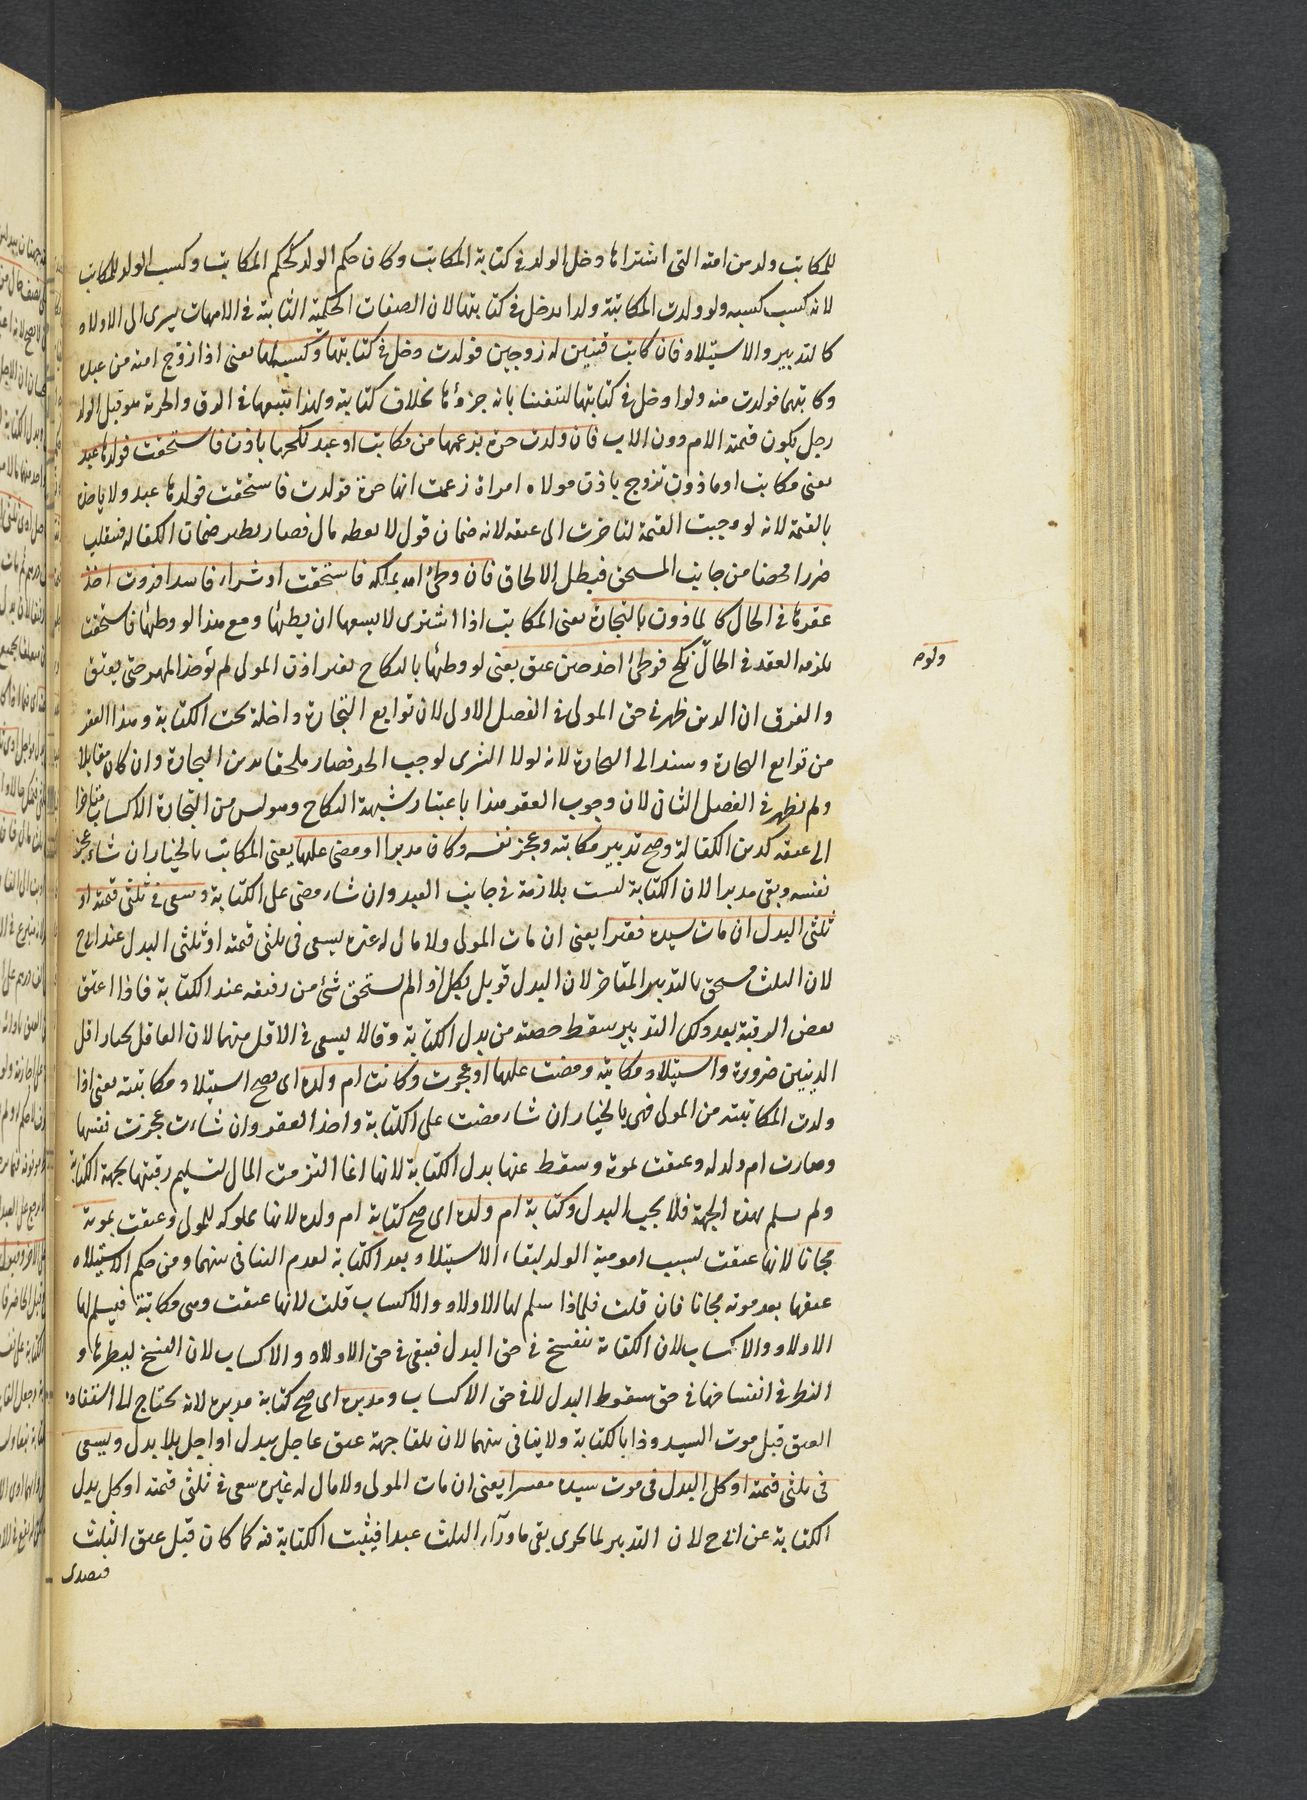 للمكاتب ولد من امته التى اشتراها دخل الولد فى كتابة المكاتب وكان حكم الولد كحكم المكاتب وكسب الولد للمكاتب
لانه كسب كسبه ولو ولدت المكاتبة ولدا يدخل فى كتابتها لان الصفات الحكمية الثابتة فى الامهات يسرى الى الاولاد
كالتدبير والاستيلاد فان كاتب قنين له زوجين فولدت دخل فى كتابتها وكسبه لها يعنى اذا زوج امته من عبده
وكاتبهما فولدت منه ولدا دخل فى كتابتها لتيقننا بانه جزؤها بخلاف كتابته ولهذا يتبعها فى الرق والحرية حتى قبل الولد
رجل يكون قيمته للام دون الاب فان ولدت حرة بزعمها من مكاتب او عبد نكحها باذن فاستحقت فولدها عبد
يعنى مكاتب او ماذون تزوج باذن مولاه امراة زعمت انها حرة فولدت فاستحقت فولدها عبد ولا ياخذه
بالقيمة لانه لو وجبت القيمة لتاخرت الى عتقه لانه ضمان قول لا يعطه مال فصار نظير ضمان الكفالة فينقلب
ضررا محضا من جانب المستحق فبطل الالحاق فان وطئ امة بملكه فاستحقت او شراء فاسد افردت اخذ
عقرها فى الحال كالماذون بالتجارة يعنى المكاتب اذا اشترى لا يسعها ان يطئها ومع هذا لو وطئها فاستحقت
يلزمه العقد فى الحال نكح فوطئ اخذ حين عتق يعنى لو وطئها بالنكاح بغير اذن المولى لم يؤخذ المهر حتى يعتق
ولوم
والفرق ان الدين ظهر فى حق المولى فى الفصل الاول لان توابع التجارة داخلة تحت الكتابة وهذا العقر
من توابع التجارة ومسند الى التجارة لانه لولا الشرى لوجب الحد فصار ملحقا بدين التجارة وان كان مقابلا
ولم يظهر فى الفصل الثانى لان وجوب العقر هذا باعتبار شبهة النكاح وهو ليس من التجارة الاكساب متاخرا
الى عتقه كدين الكفالة وصح تدبير مكاتبه وعجز نفسه وكان مدبرا او مضى عليها يعنى المكاتب بالخيار ان شاء عجز
نفسه وبقى مدبرا لان الكتابة ليست بلازمة فى جانب العبد وان شاء مضى على الكتابة وسعى فى ثلثى قيمته او
ثلثى البدل ان مات سيده فقيرا يعنى ان مات المولى ولا مال له غيره يسعى فى ثلثى قيمته او ثلثى البدل عند ابى ح
لان الثلث مستحق بالتدبير المتاخر لان البدل قوبل بكل اذ لم يستحق شئ من رقبته عند الكتابة فاذا اعتق
بعض الرقبة بعد ذلك التدبير سقط حصته من بدل الكتابة وقالا يسعى فى الاقل منهما لان العاقل يختار اقل
الدينين ضرورة واستيلاد مكاتبة ومضت عليها او عجزت وكانت ام ولده اى يصح استيلاد مكاتبته يعنى اذا
ولدت المكاتبة من المولى فهى بالخيار ان شاء مضت على الكتابة واخذ العقر وان شاءت عجزت نفسها
وصارت ام ولد له وعتقت بموته وسقط عنها بدل الكتابة لانها انما التزمت المال لتسليم رقبتها بجهة الكتابة
ولم يسلم بهذه الجهة فلا يجب البدل وكتابة ام ولده اى صح كتابة ام ولده لانها مملوكة للمولى وعتقت بموته
مجانا لانها عتقت بسبب امومية الولد لبقاء الاستيلاد بعد الكتابة لعدم التنافى بينهما ومن حكم الاستيلاد
عتقها بعد موته مجانا فان قلت فلماذا سلم لها الاولاد والاكساب قلت لانها عتقت وهى مكاتبة فيسلم لها
الاولاد والاكساب لان الكتابة تنفسخ فى حق البدل فبقى فى حق الاولاد والاكساب لان الفسخ لنظرها و
النظر فى انفساخها فى حق سقوط البدل لا فى حق الاكساب ومدبره اى صح كتابة مدبره لانه يحتاج الى استفادة
العتق قبل موت السيد وذا بالكتابة ولا ينافى بينهما لان تلقا جهة عتق عاجل ببدل او اجل بلا بدل ويسعى
فى ثلثى قيمته او كل البدل فى موت سيده معسرا يعنى ان مات المولى ولا مال له غيره سعى فى ثلثى قيمته او كل بدل
الكتابة عن ابى ح لان التدبير لما تجزى بقى ما وراء الثلث عبدا فيثبت الكتابة فيه كما كان قبل عتق الثلث
فتصدى